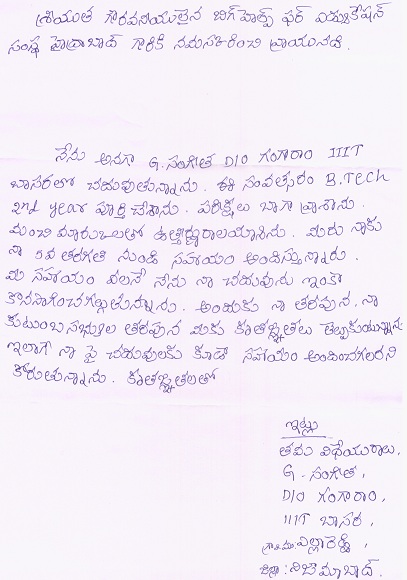 శ్రీయుత గౌరవనీయులైన బిగ్‌హెల్ప్ ఫర్ ఎడ్యుకేషన్
సంస్థ హైద్రాబాద్ గారికి నమస్కరించి వ్రాయునది.
నేను అనగా G. సంగీత D/O గంగారాం IIIT
బాసరలో చదువుతున్నాను. ఈ సంవత్సరం B.Tech
2nd year పూర్తి చేశాను. పరీక్షలు బాగా వ్రాశాను.
మంచి మార్కులతో ఉత్తీర్ణురాలయ్యాను. మీరు నాకు
నా 8వ తరగతి నుండి సహాయం అందిస్తున్నారు.
మీ సహాయం వలనే నేను నా చదువును ఇంకా
కొనసాగించగల్గుతున్నాను. అందుకు నా తరపున, నా
కుటుంబసభ్యుల తరపున మీకు కృతజ్ఞతలు తెల్పుకుంటున్నాను
ఇలాగే నా పై చదువులకు కూడా సహాయం అందించగలరని
కోరుతున్నాను. కృతజ్ఞతలతో
ఇట్లు
తమ విధేయురాలు,
G. సంగీత,
D/O గంగారాం,
IIIT బాసర,
గ్రామం: ఎల్లారెడ్డి,
జిల్లా: నిజామాబాద్.